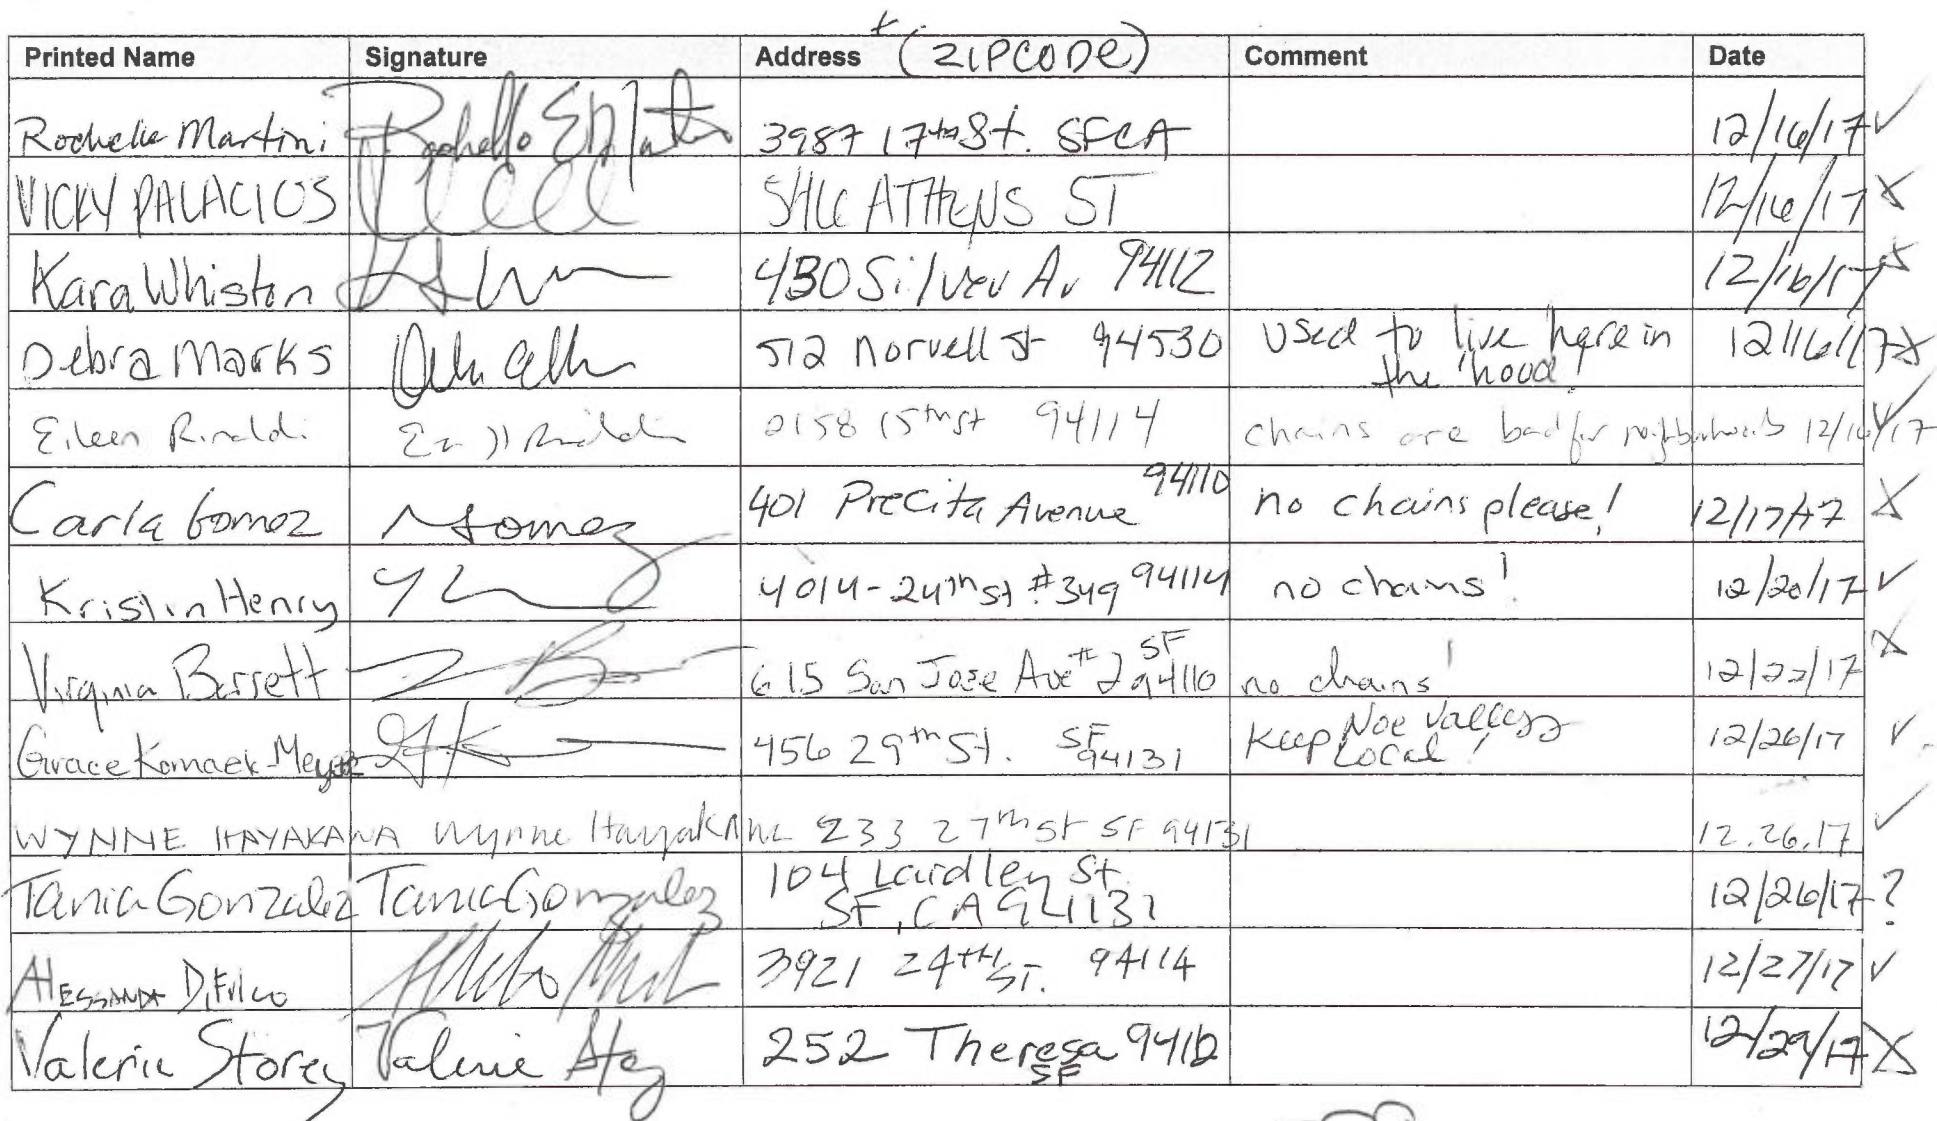 + (ZIPCODE)
Printed Name Signature Address Comment Date
Rochelle Martini 3987 17th St. SFCA 12/16/17 ✓
VICKY PALACIOS ATHENS ST 12/16/17 X
Kara Whiston 430 Silver Av 94112 12/16/17 X
Debra Marks 512 Norvell St 94530 Used to live here in 12/16/17 X
the 'hood!
Eileen Rinaldi 2158 15th st 94114 chains are bad for neighborhoods 12/16/17 ✓
Carla Gomez Gomez 401 Precita Avenue 94110 no chains please! 12/17/17 X
Kristin Henry 4014-24th st #349 94114 no chains! 12/20/17 ✓
Virginia Barrett 615 San Jose Ave #2 SF 94110 no chains! 12/22/17 X
Grace 456 29th St. SF 94131 Keep Noe Valley Local! 12/26/17 ✓
WYNNE HAYAKAWA Wynne Hayakawa 233 27th St SF 94131 12.26.17 ✓
Tania Gonzalez Tania Gonzalez 104 Laidley St. 12/26/17 ?
SF, CA 94131
3921 24TH ST. 94114 12/27/17 ✓
Valerie Storey Valerie Storey 252 Theresa 94112 12/29/17 X
SF